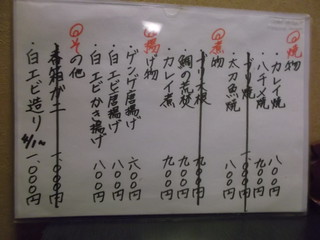 ◎焼物
・カレイ焼 一、〇〇〇円
・ハチメ焼 九〇〇円
・太刀魚焼 九〇〇円
・ブリ焼 一、〇〇〇円
八〇〇円
◎煮物
・ブリ大根 九〇〇円
・鯛の荒煮 九〇〇円
・カレイ煮 九〇〇円
◎揚げ物
・ゲンゲ唐揚げ 六〇〇円
・白エビ唐揚げ 八〇〇円
・白エビかき揚げ 八〇〇円
◎その他
・香箱ガニ 一、〇〇〇円
・白エビ造り 一、〇〇〇円